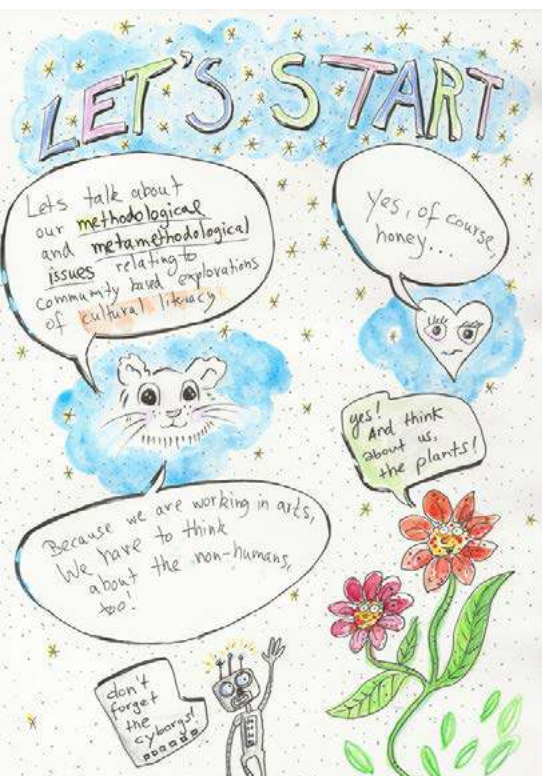 LET'S START
Lets talk about
our methodological
and metamethodological
issues relating to
community baed explorations
of cultural literacy
Yes, of course
honey...
yes!
And think
about us,
the plants!
Because we are working in arts,
We have to think
about the non-humans,
too!
don't
forget
the
cyborgs!